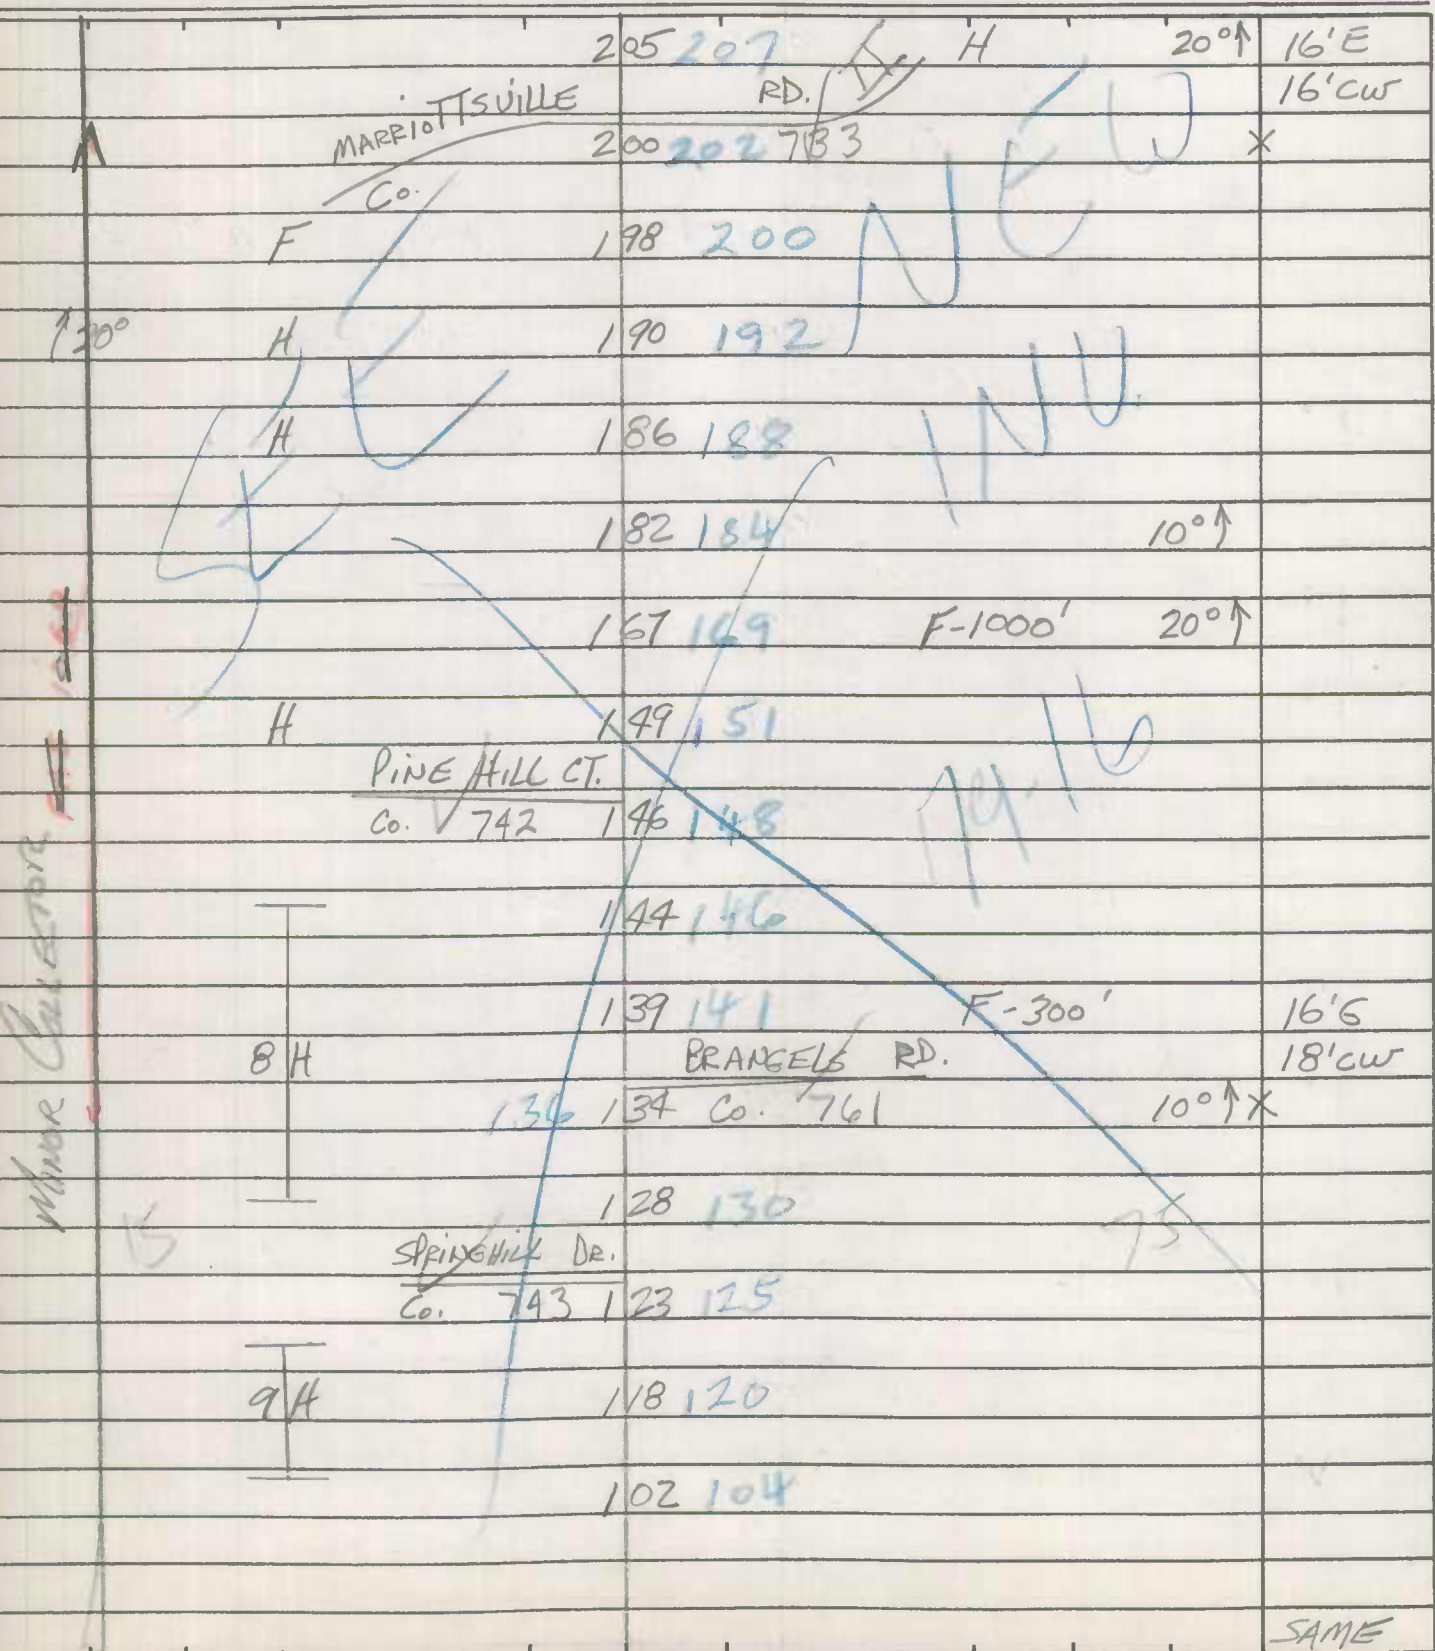 205 207 H 20°↑ 16'E
MARRIOTTSVILLE RD. 16'CW
200 202 783 X
Co.
F 198 200
NEW
↑20° H 190 192
H 186 188
INV.
182 184 10°↑
167 169 F-1000' 20°↑
H 149 151
PINE HILL CT.
Co. 742 146 148
144 146
139 141 F-300' 16'G
8 H BRANGELS RD. 18'CW
136 134 Co. 761 10°↑ X
128 130
15 75
SPRINGHILL DR.
Co. 743 123 125
9 H 118 120
102 104
SAME
MINOR COLLECTOR